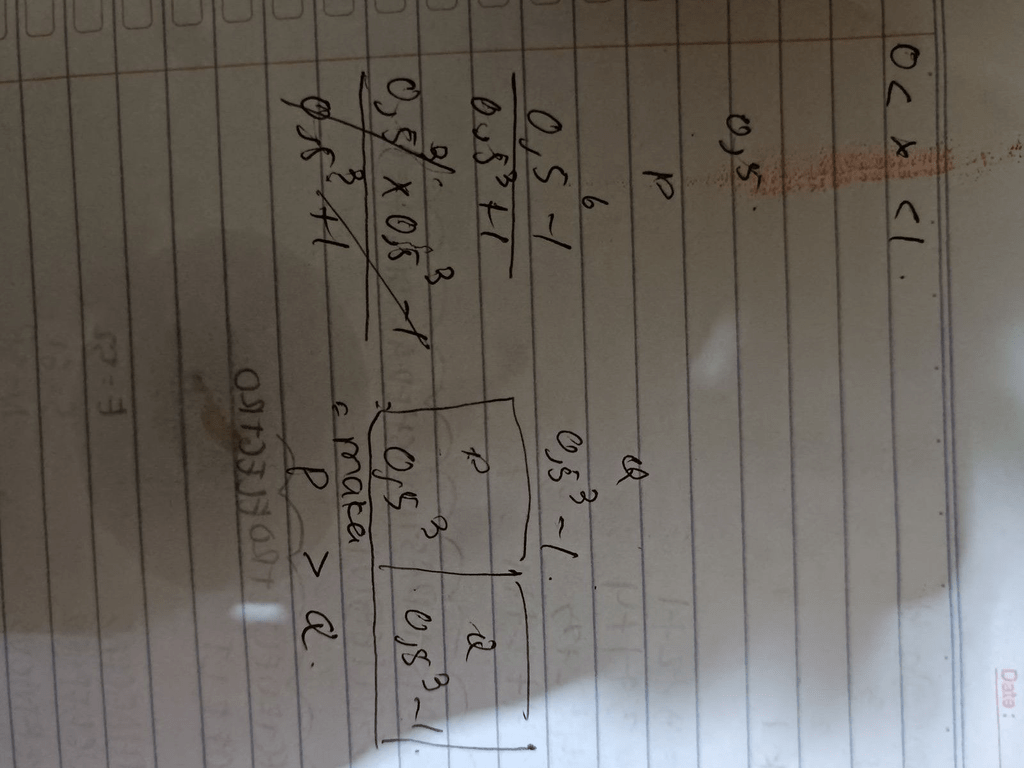 Date :
0 < x < 1.
0,5.
P Q
0,5⁶ - 1 0,5³ - 1.
0,5³ + 1
0,5³ × 0,5³ - 1 P Q
0,5³ + 1 0,5³ 0,5³ - 1.
: maka
P > Q.